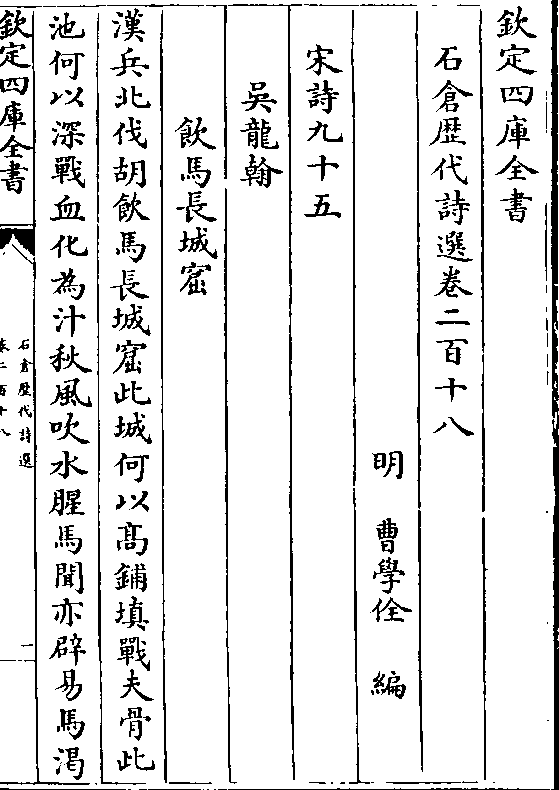 欽定四庫全書
石倉歴代詩選卷二百十八
明 曹學佺 編
宋詩九十五
吳龍翰
飲馬長城窟
漢兵北伐胡飲馬長城窟此城何以髙鋪填戰夫骨此
池何以深戰血化為汁秋風吹水腥馬聞亦辟易馬渴
欽定四庫全書
石倉歴代詩選
卷二百十八
一